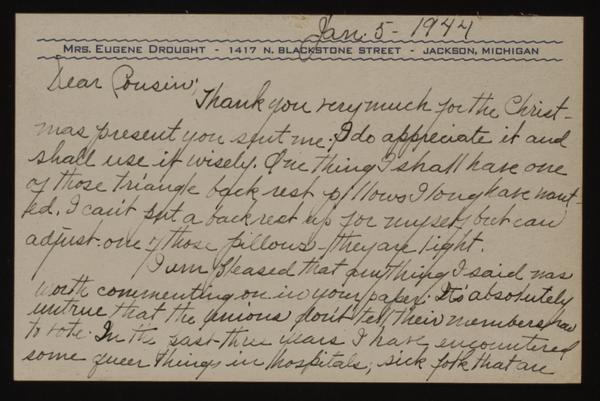 Jan. 5 - 1944
MRS. EUGENE DROUGHT - 1417 N. BLACKSTONE STREET - JACKSON, MICHIGAN
Dear Cousin;
Thank you very much for the Christ-
mas present you sent me. I do appreciate it and
shall use it wisely. One thing I shall have one
of those triangle back rest pillows I long have want-
ed. I can't put a back rest up for myself but can
adjust one of those pillows - they are light.
I am pleased that anything I said was
worth commenting on in your paper. It's absolutely
untrue that the unions don't tell their members how
to vote. In the past three years I have encountered
some queer things in hospitals, sick folk that are